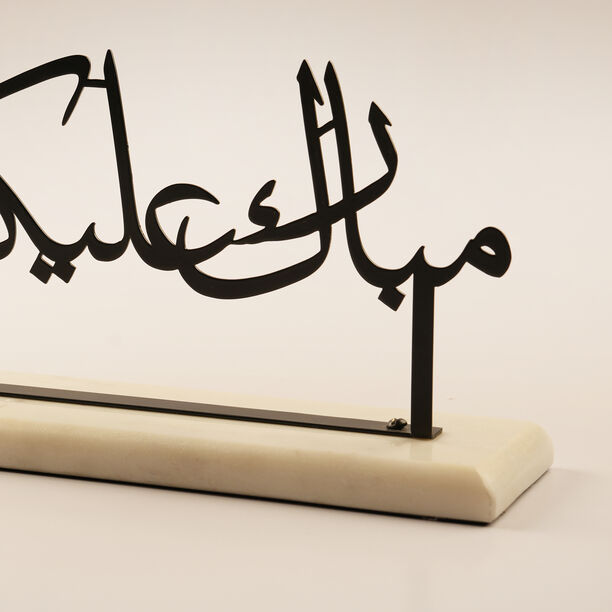 مبارك عليك